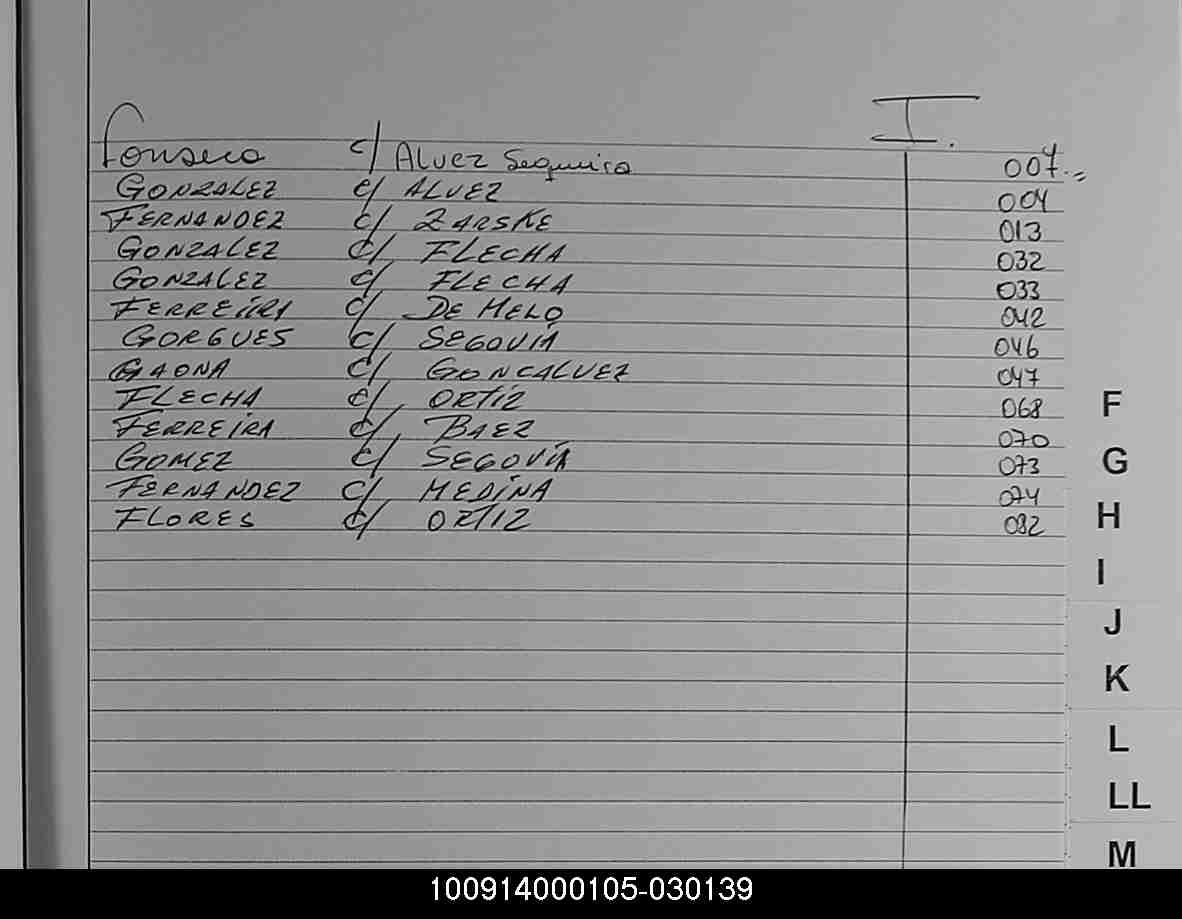 I.
Fonseca c/ Alvez Sequeira 007.=
GONZALEZ c/ ALVEZ 004
FERNANDEZ c/ ZARSKE 013
GONZALEZ c/ FLECHA 032
GONZALEZ c/ FLECHA 033
FERREIRA c/ DE MELO 042
GORGUES c/ SEGOVIA 046
GAONA c/ GONCALVEZ 047
FLECHA c/ ORTIZ 068
FERREIRA c/ BAEZ 070
GOMEZ c/ SEGOVIA 073
FERNANDEZ c/ MEDINA 074
FLORES c/ ORTIZ 082
F
G
H
I
J
K
L
LL
M
100914000105-030139